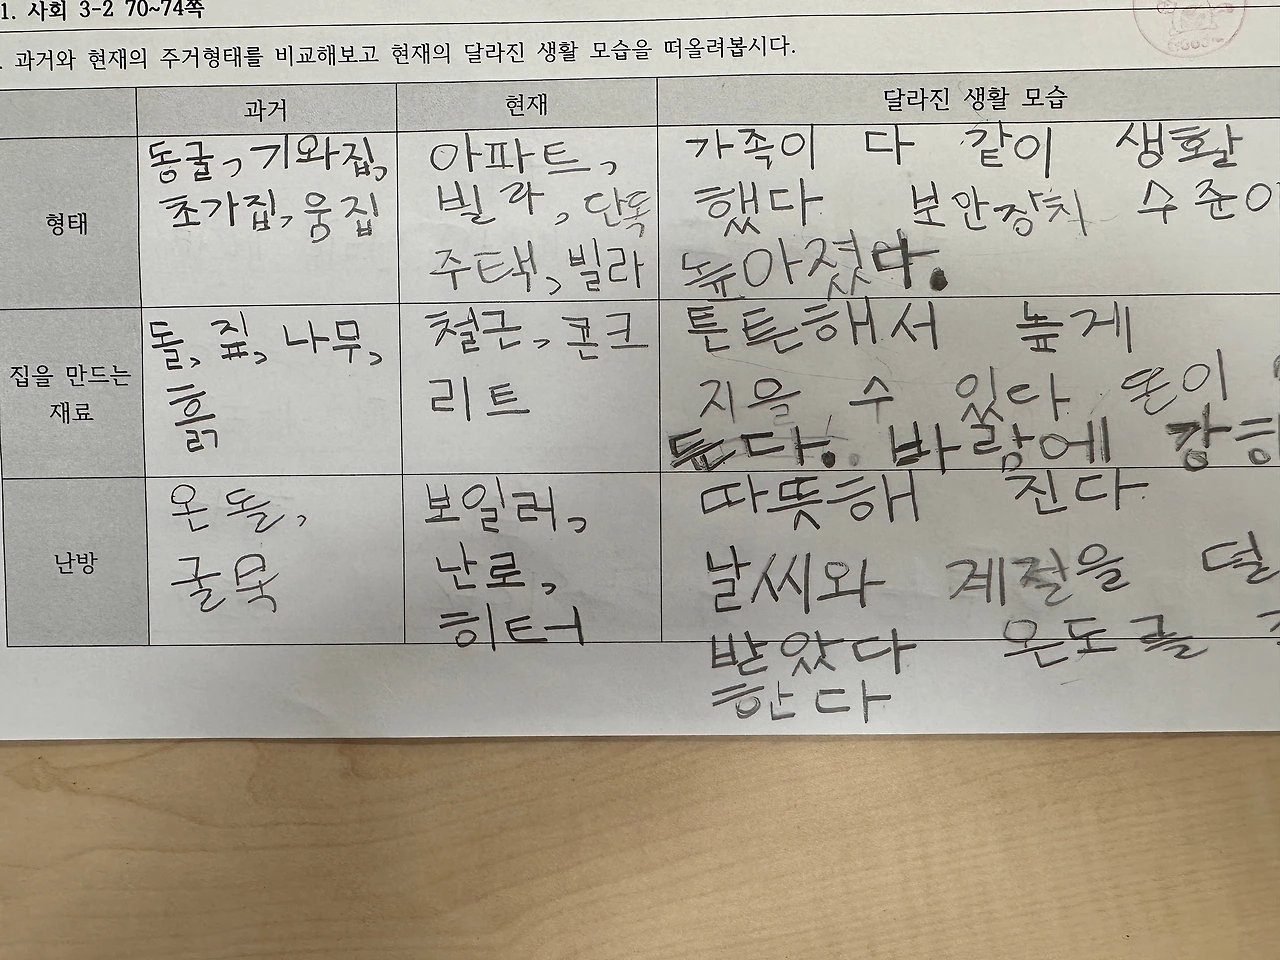 1. 사회 3-2 70~74쪽
. 과거와 현재의 주거형태를 비교해보고 현재의 달라진 생활 모습을 떠올려봅시다.
과거 현재 달라진 생활 모습
형태
동굴, 기와집,
초가집, 움집
아파트,
빌라, 단독
주택, 빌라
가족이 다 같이 생활
했다 보안장치 수준이
높아졌다.
집을 만드는
재료
돌, 짚, 나무,
흙
철근, 콘크
리트
튼튼해서 높게
지을 수 있다 돈이
든다. 바람에 강하
난방
온돌,
굴묵
보일러,
난로,
히터
따뜻해 진다
날씨와 계절을 덜
받았다 온도를
한다